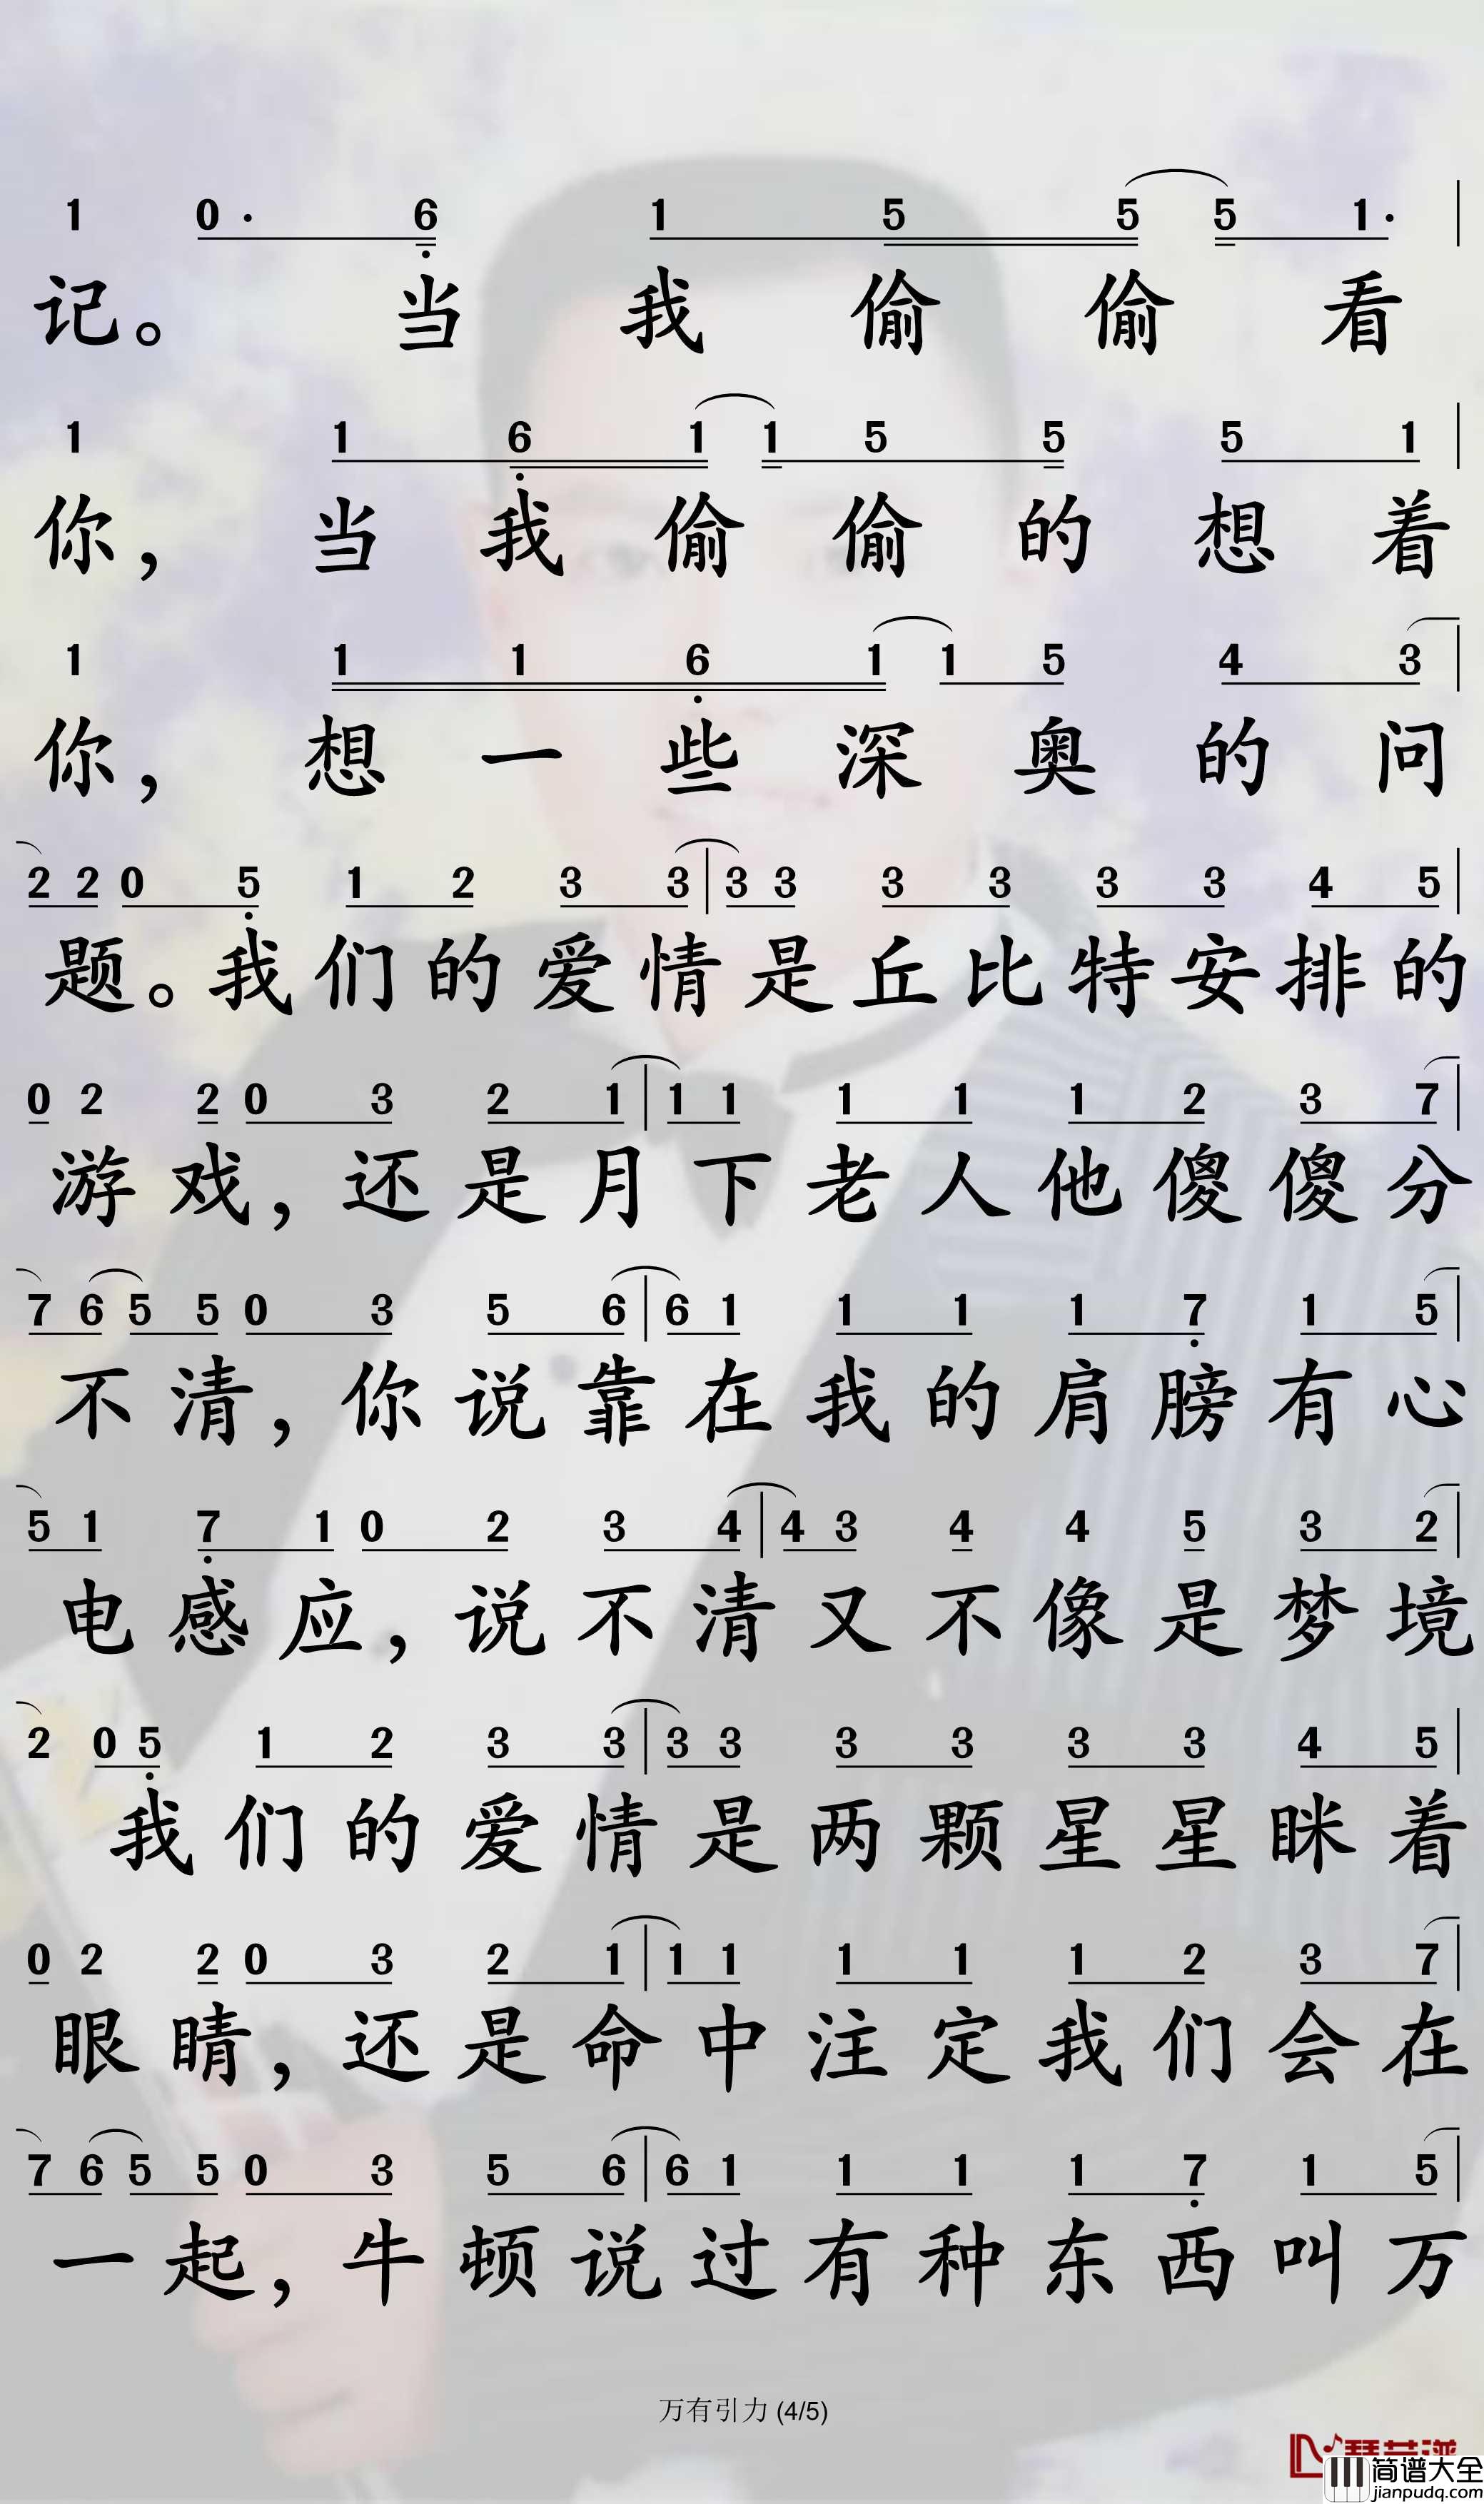 1 0· 6 1 5 5 5 1·
记。 当 我 偷 偷 看
1 1 6 1 1 5 5 5 1
你， 当 我 偷 偷 的 想 着
1 1 1 6 1 1 5 4 3
你， 想 一 些 深 奥 的 问
2 2 0 5 1 2 3 3 3 3 3 3 3 3 4 5
题。我 们 的 爱 情 是 丘 比 特 安 排 的
0 2 2 0 3 2 1 1 1 1 1 1 2 3 7
游 戏， 还 是 月 下 老 人 他 傻 傻 分
7 6 5 5 0 3 5 6 6 1 1 1 1 7 1 5
不 清， 你 说 靠 在 我 的 肩 膀 有 心
5 1 7 1 0 2 3 4 4 3 4 4 5 3 2
电 感 应， 说 不 清 又 不 像 是 梦 境
2 0 5 1 2 3 3 3 3 3 3 3 3 4 5
我 们 的 爱 情 是 两 颗 星 星 眯 着
0 2 2 0 3 2 1 1 1 1 1 1 2 3 7
眼 睛， 还 是 命 中 注 定 我 们 会 在
7 6 5 5 0 3 5 6 6 1 1 1 1 7 1 5
一 起， 牛 顿 说 过 有 种 东 西 叫 万
万有引力 (4/5)
简谱大全
jianpudq.com